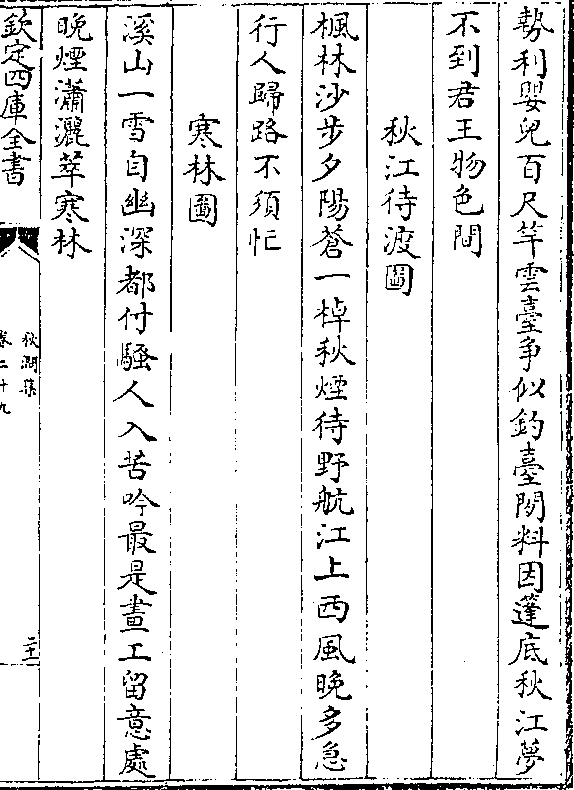 勢利嬰兒百尺竿雲臺争似釣臺閒料因蓬底秋江夢
不到君王物色間
秋江待渡圖
楓林沙步夕陽蒼一棹秋煙待野航江上西風晚多急
行人歸路不須忙
寒林圖
溪山一雪自幽深都付騷人入苦吟最是畫工留意處
晚煙瀟灑萃寒林
欽定四庫全書
秋澗集
卷二十九